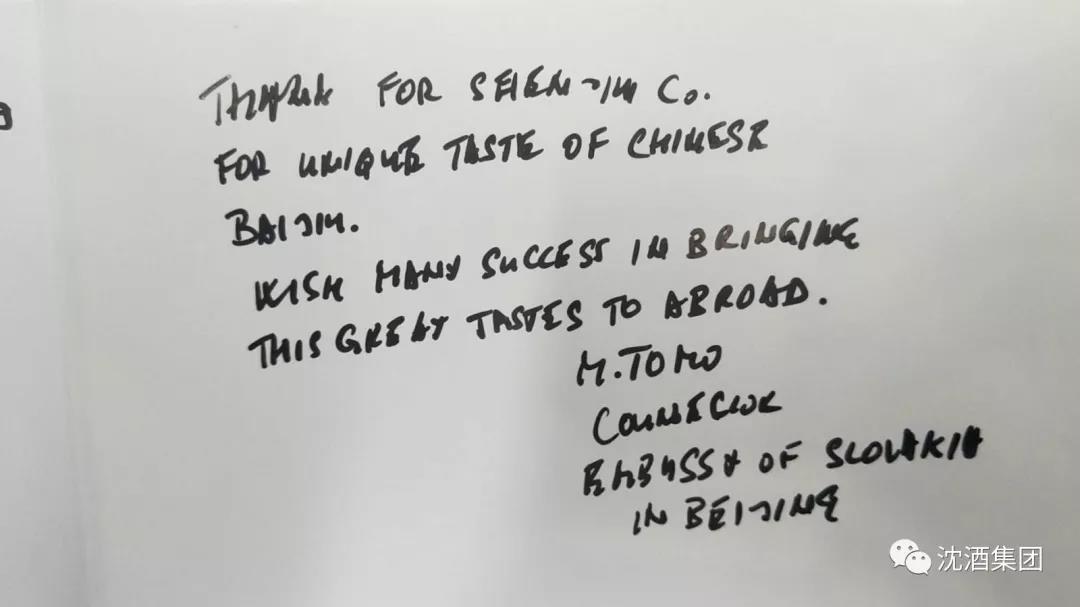 THANK FOR SHEN-JIU Co.
FOR UNIQUE TASTE OF CHINESE
BAIJIU.
WISH MANY SUCCESS IN BRINGING
THIS GREAT TASTES TO ABROAD.
M. TOMO
COUNECLOR
EMBASSY OF SLOVAKIA
IN BEIJING
沈酒集团